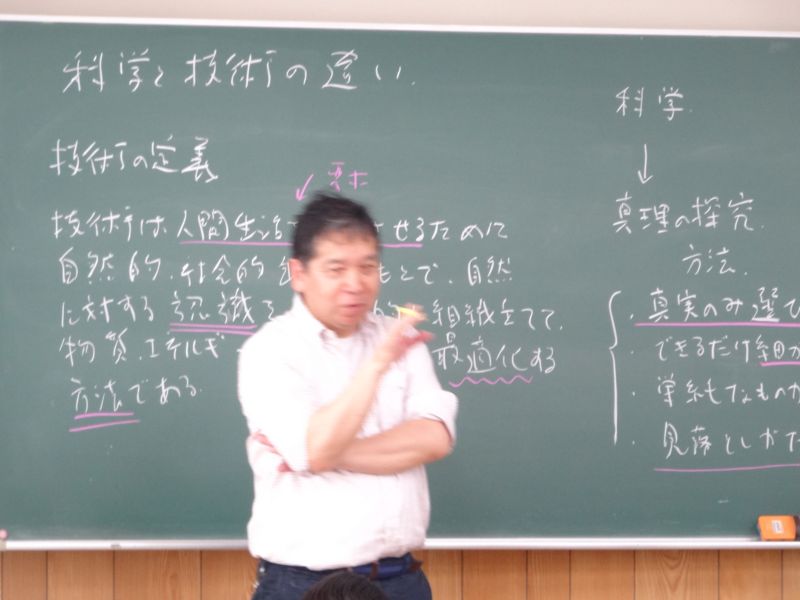 科学と技術の違い.
技術の定義
要求
技術は人間生活 させるために
自然的・社会的 もとで、自然
に対する認識を 的 組織立てて、
物質、エネルギー 最適化する
方法である.
科学.
↓
真理の探究.
方法.
・真実のみ選び
・できるだけ細か
・単純なものか
・見落としがな